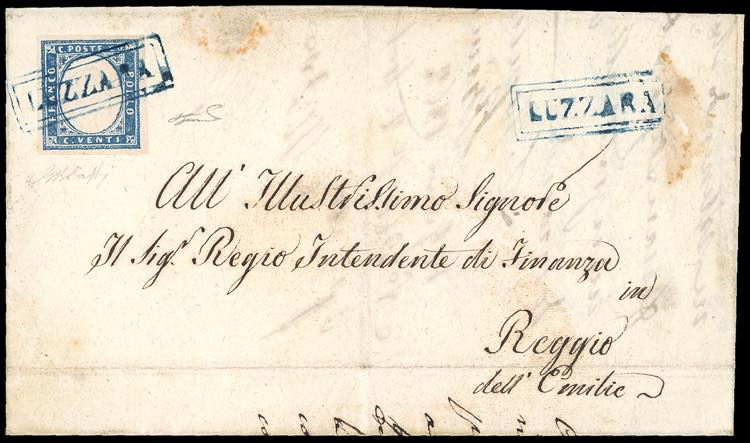 C. POSTE
FRANCO
BOLLO
C. VENTI
LUZZARA
LUZZARA
All' Illustrissimo Signore
Il Sigr. Regio Intendente di Finanza
in
Reggio
dell' Emilie